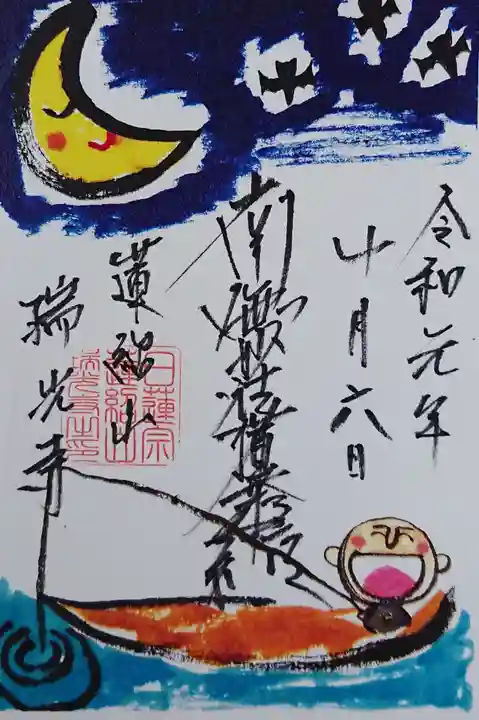 令和元年
十月六日
南無妙法蓮華経
蓮紹山
瑞光寺
日蓮宗
蓮紹山
瑞光寺印